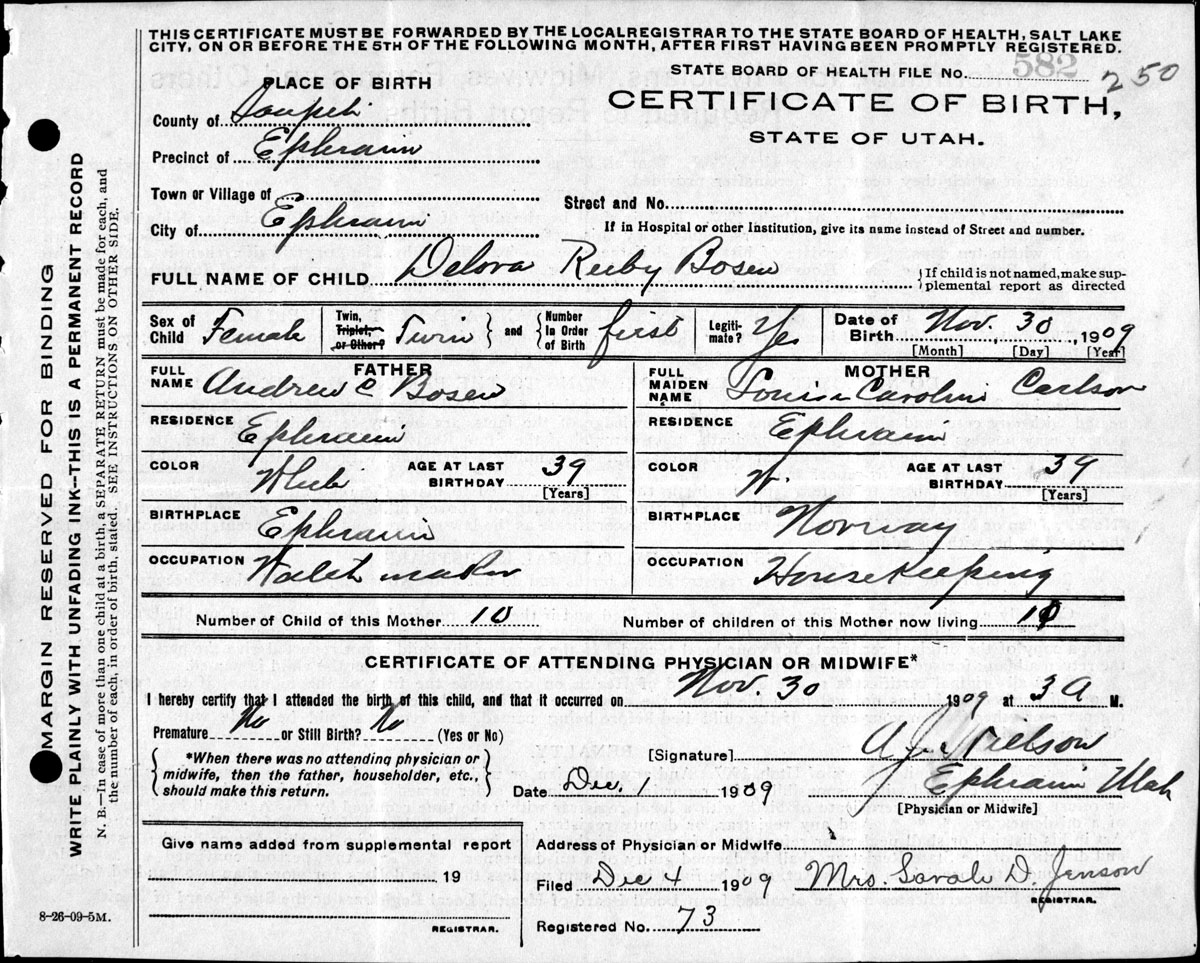 THIS CERTIFICATE MUST BE FORWARDED BY THE LOCALREGISTRAR TO THE STATE BOARD OF HEALTH, SALT LAKE
CITY, ON OR BEFORE THE 5TH OF THE FOLLOWING MONTH, AFTER FIRST HAVING BEEN PROMPTLY REGISTERED.
STATE BOARD OF HEALTH FILE No. 582 250
PLACE OF BIRTH
CERTIFICATE OF BIRTH,
STATE OF UTAH.
County of Sanpete
Precinct of Ephraim
Town or Village of
Street and No.
City of Ephraim
If in Hospital or other Institution, give its name instead of Street and number.
FULL NAME OF CHILD Delora Reuby Bosen
{If child is not named, make sup-
plemental report as directed
Sex of Child Female
Twin, Triplet, or Other? Twin } and { Number In Order of Birth first
Legiti-mate? Yes
Date of Birth Nov. 30, 1909
[Month] [Day] [Year]
FATHER
FULL NAME Andrew C Bosen
RESIDENCE Ephraim
COLOR White AGE AT LAST BIRTHDAY 39
[Years]
BIRTHPLACE Ephraim
OCCUPATION Watch maker
MOTHER
FULL MAIDEN NAME Louise Caroline Carlson
RESIDENCE Ephraim
COLOR W. AGE AT LAST BIRTHDAY 39
[Years]
BIRTHPLACE Norway
OCCUPATION Housekeeping
Number of Child of this Mother 10 Number of children of this Mother now living
CERTIFICATE OF ATTENDING PHYSICIAN OR MIDWIFE*
I hereby certify that I attended the birth of this child, and that it occurred on Nov. 30 1909 at 3 A M.
Premature No or Still Birth? No (Yes or No)
{ *When there was no attending physician or
midwife, then the father, householder, etc.,
should make this return. }
[Signature] A J Nielson
Date Dec. 1 1909 Ephraim Utah
[Physician or Midwife]
Give name added from supplemental report
19
REGISTRAR.
Address of Physician or Midwife
Filed Dec 4 1909 Mrs. Sarah D. Jenson
REGISTRAR.
Registered No. 73
8-26-09-5M.
MARGIN RESERVED FOR BINDING
WRITE PLAINLY WITH UNFADING INK--THIS IS A PERMANENT RECORD
N. B.—In case of more than one child at a birth, a SEPARATE RETURN must be made for each, and
the number of each, in order of birth, stated. SEE INSTRUCTIONS ON OTHER SIDE.